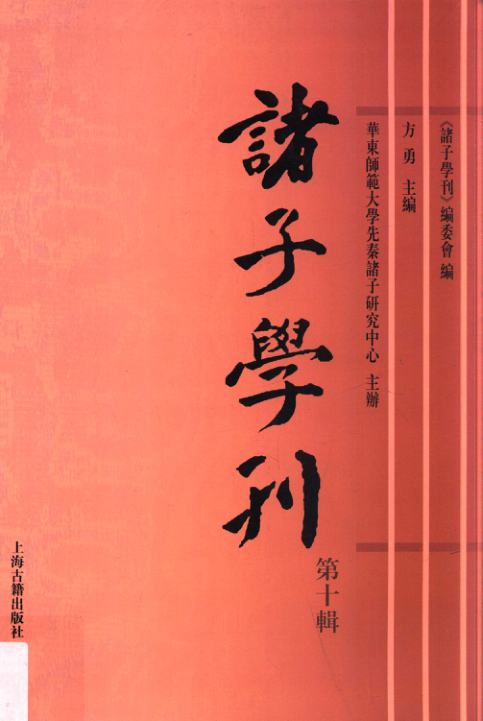 《諸子學刊》編委會 編
方勇 主編
華東師範大學先秦諸子研究中心 主辦
諸子學刊
第十輯
上海古籍出版社